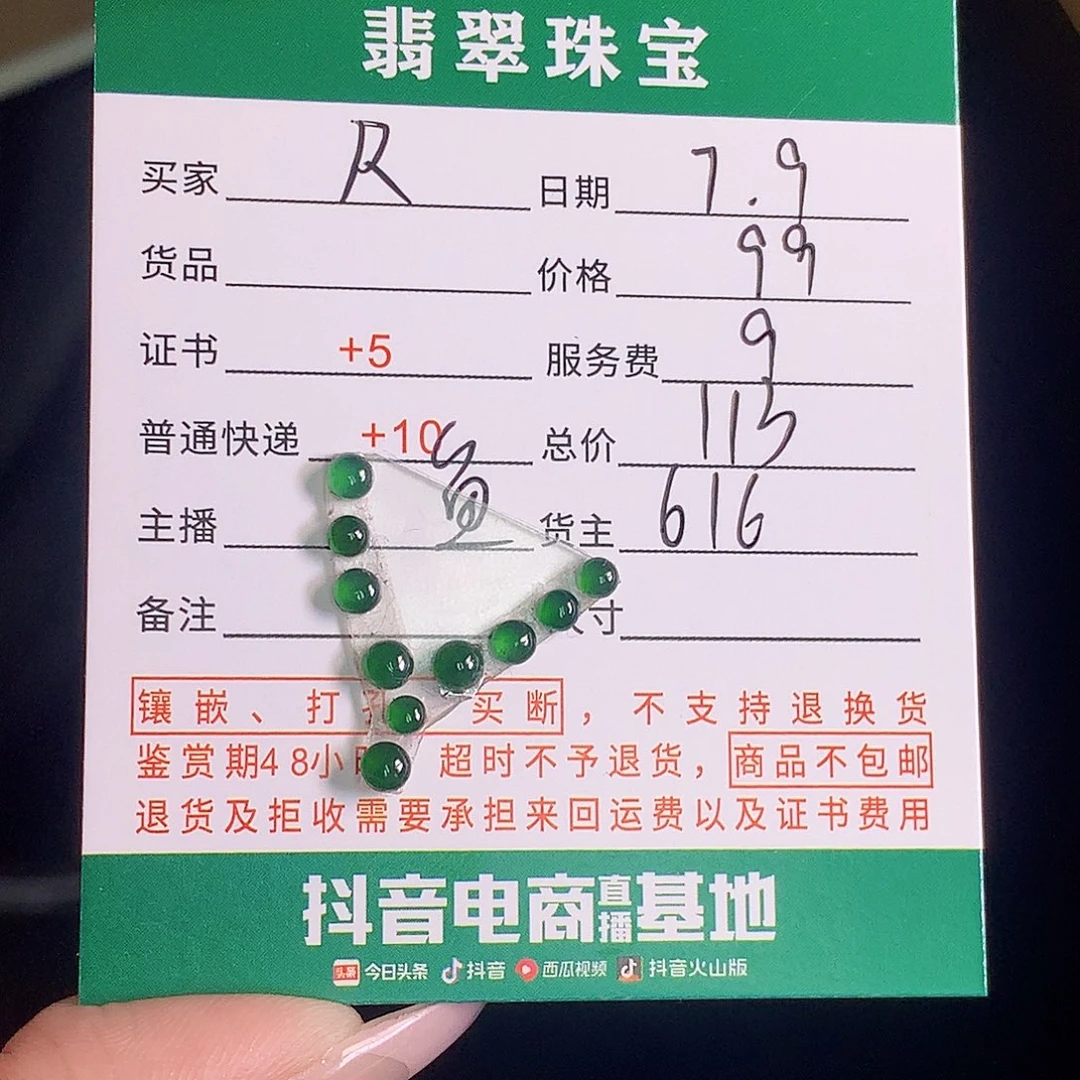 翡翠珠宝
买家 R 日期 7.9
货品 价格 99
证书 +5 服务费 9
普通快递 +10 总价 113
主播 货主 616
备注 寸
镶嵌、打 买断,不支持退换货
鉴赏期48小 超时不予退货,商品不包邮
退货及拒收需要承担来回运费以及证书费用
抖音电商直播基地
头条 今日头条 抖音 西瓜视频 抖音火山版